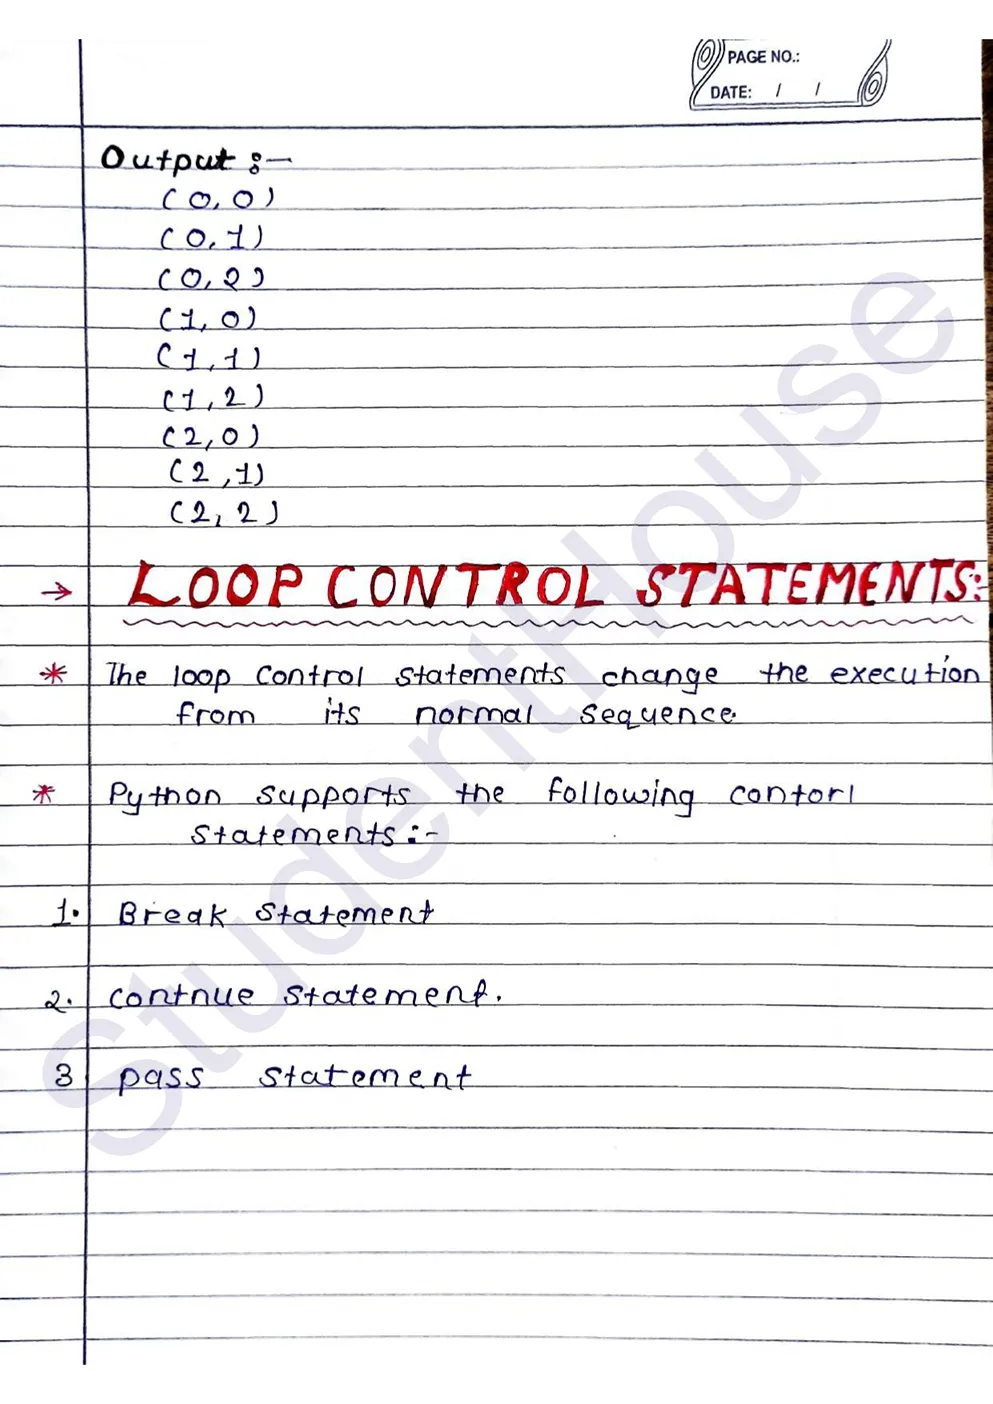 PAGE NO.:
DATE: / /
Output :-
(0,0)
(0,1)
(0,2)
(1,0)
(1,1)
(1,2)
(2,0)
(2,1)
(2,2)
→ LOOP CONTROL STATEMENTS:
* The loop control statements change the execution
from its normal sequence.
* Python supports the following contorl
statements:-
1. Break statement
2. contnue statement.
3 pass statement
StudentHouse